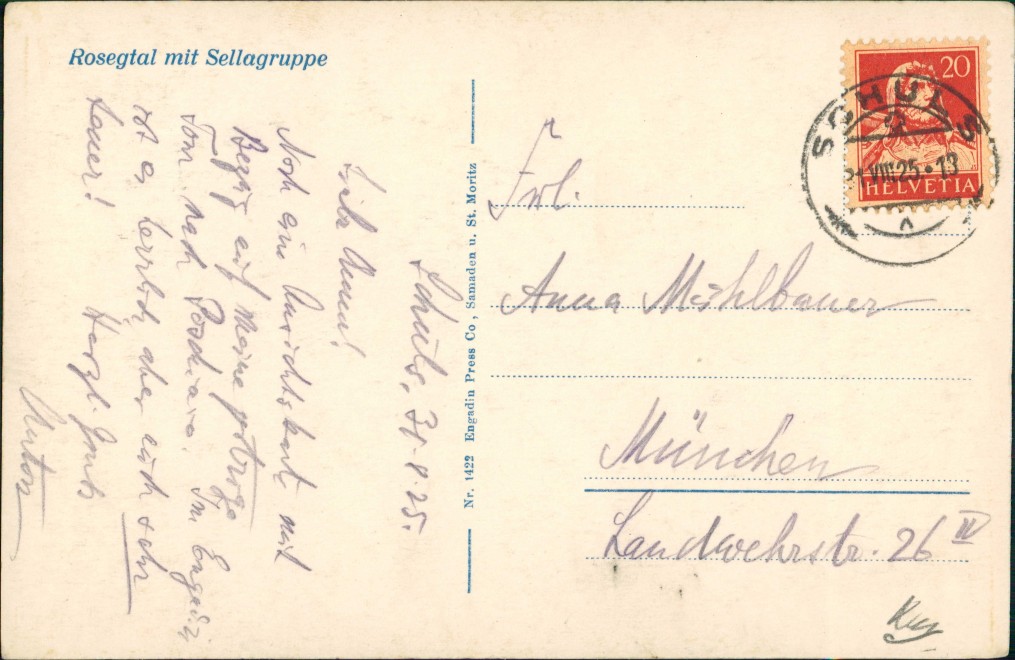 Rosegtal mit Sellagruppe
Schuls, 31.8.25.
Liebe Anna!
Noch eine Ansichtskarte mit
Bezug auf meine gestrige
Tour nach Poschiavo. Im Engadin
ist es herrlich, aber auch sehr
teuer!
Herzl. Gruß
Anton
Nr. 1422 Engadin Press Co., Samaden u. St. Moritz
Frl.
Anna Mühlbauer
München
Landwehrstr. 26 IV
20
HELVETIA
SCHULS
31.VIII.25·13